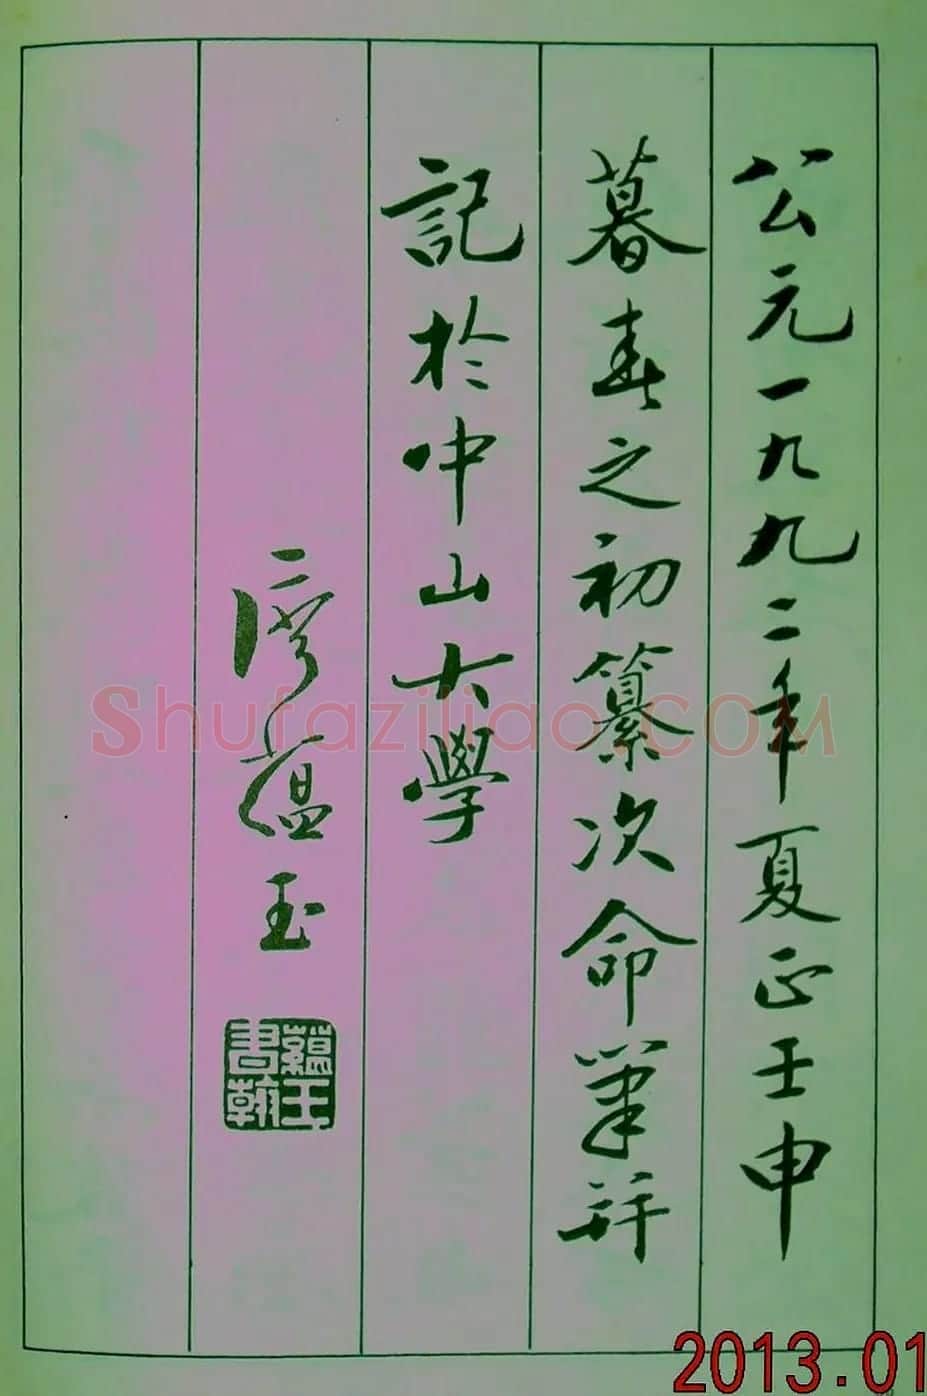 公元一九九二年夏正壬申
暮春之初纂次命筆并
記於中山大學
廖蘊玉
蘊玉
書翰
Shufaziliao.COM
2013.01